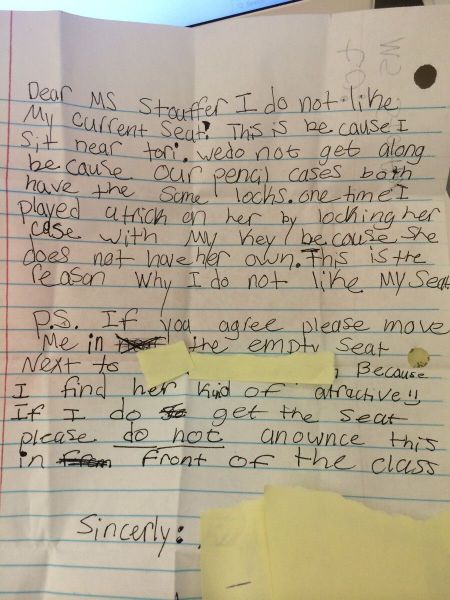 Dear MS Stauffer I do not like
My current seat. This is because I
Sit near tori. we do not get along
because our pencil cases both
have the same locks. one time I
played a trick on her by locking her
case with My key because she
does not have her own. This is the
reason why I do not like My Seat
P.S. If you agree please move
Me in the empty seat
Next to Because
I find her kind of atractive!!
If I do get the seat
please do not anownce this
in front of the class
Sincerly: